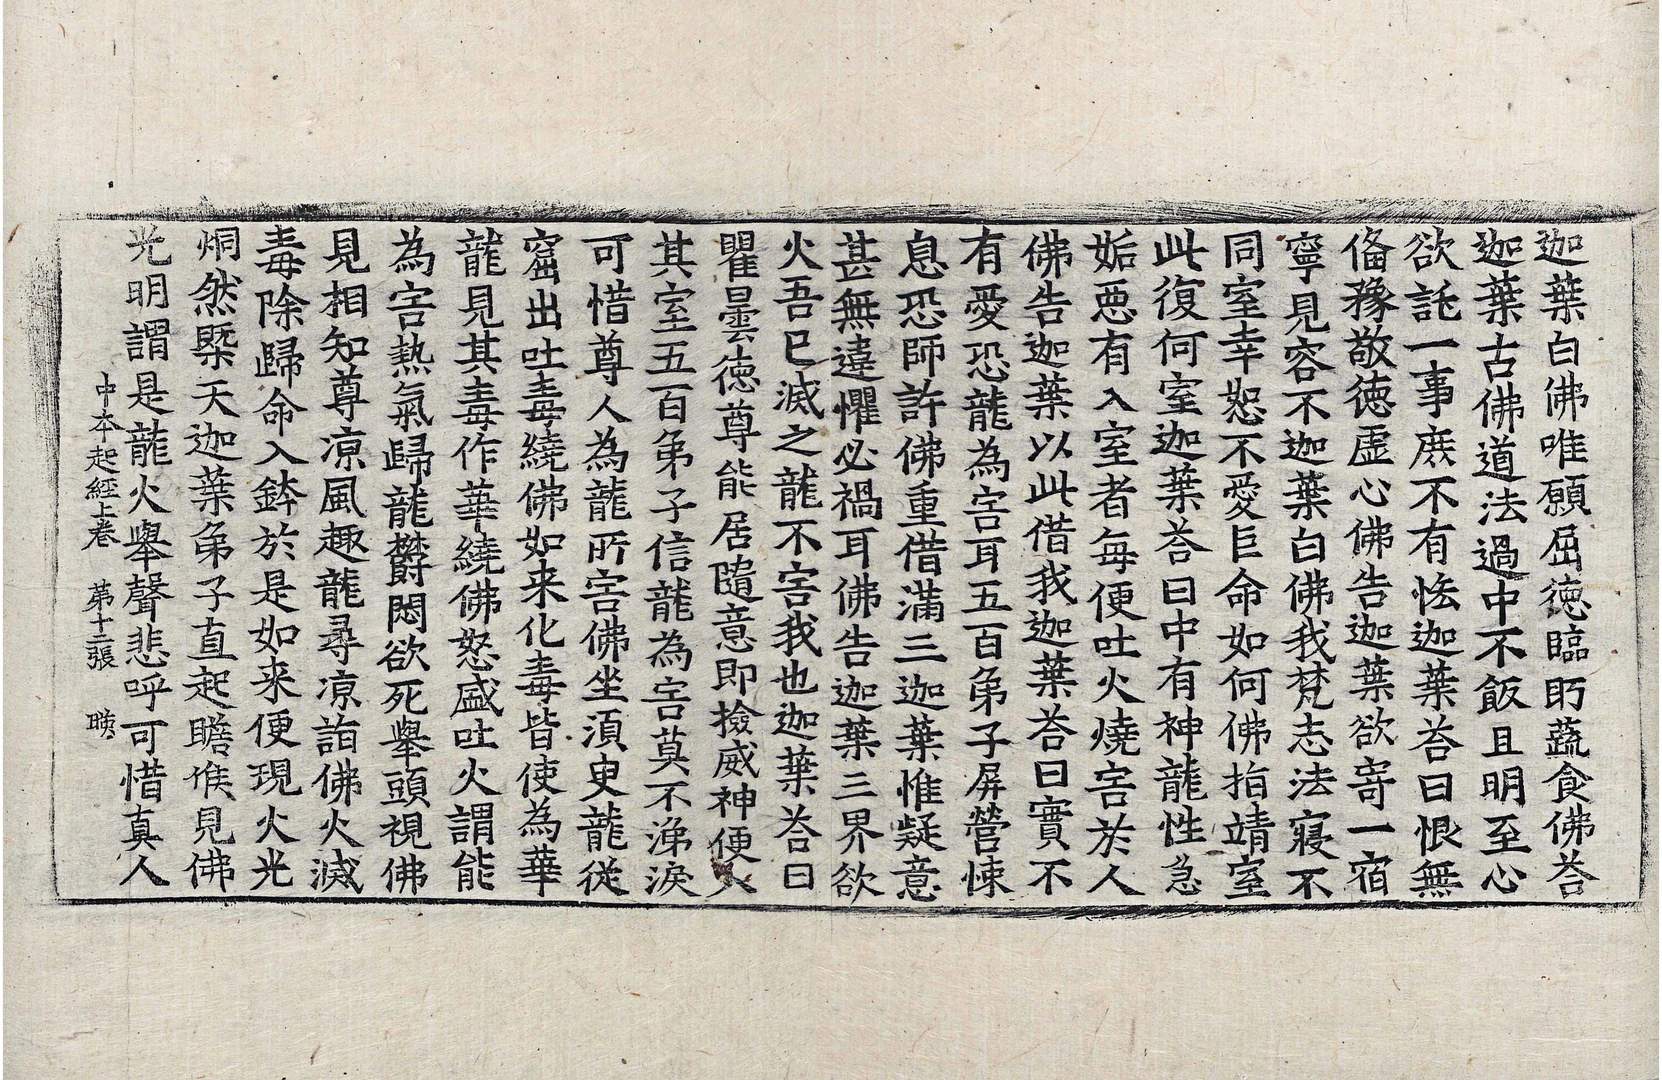 迦葉白佛唯願屈德臨眄蔬食佛荅
迦葉古佛道法過中不飯且明至心
欲託一事庶不有恡迦葉荅曰恨無
俻豫敬德虛心佛告迦葉欲寄一宿
寧見容不迦葉白佛我梵志法寢不
同室幸恕不愛巨命如何佛指靖室
此復何室迦葉荅曰中有神龍性急
姤惡有入室者每便吐火燒害於人
佛告迦葉以此借我迦葉荅曰實不
有愛恐龍為害耳五百弟子屏營悚
息恐師許佛重借滿三迦葉惟疑意
甚無違懼必禍耳佛告迦葉三界欲
火吾已滅之龍不害我也迦葉荅曰
瞿曇德尊能居隨意即撿威神便入
其室五百弟子信龍為害莫不涕淚
可惜尊人為龍所害佛坐須臾龍從
窟出吐毒繞佛如来化毒皆使為華
龍見其毒作華繞佛怒盛吐火謂能
為害熱氣歸龍欝悶欲死舉頭視佛
見相知尊凉風趣龍尋凉詣佛火滅
毒除歸命入鉢於是如来便現火光
烔然槩天迦葉弟子直起瞻候見佛
光明謂是龍火舉聲悲呼可惜真人
中本起經上卷　第十二張　暎